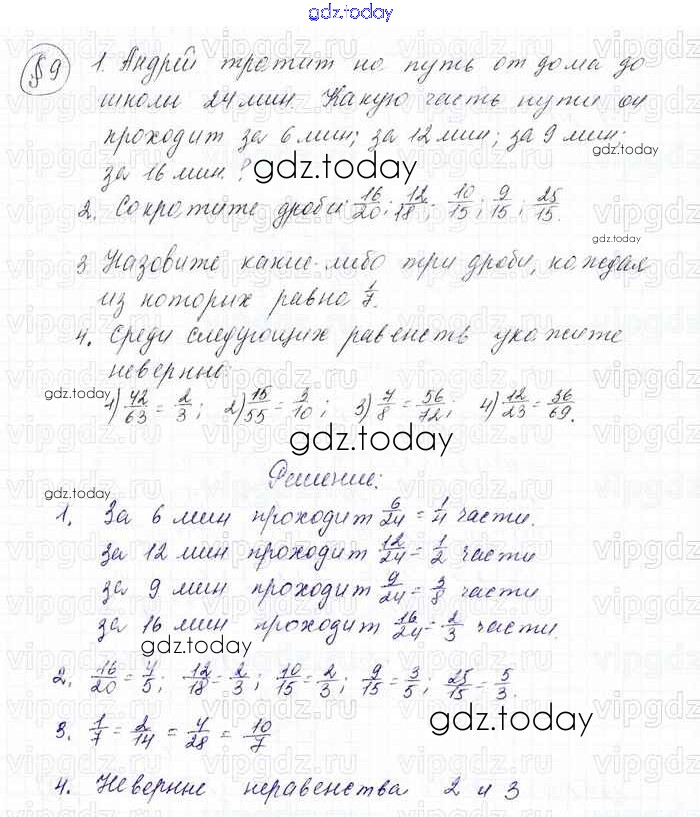 gdz.today
§ 9 1. Андрей тратит на путь от дома до
школы 24 мин. Какую часть пути он
проходит за 6 мин; за 12 мин; за 9 мин;
за 16 мин.?
gdz.today
2. Сократите дроби: 16/20; 12/18; 10/15; 9/15; 25/15.
gdz.today
3 Назовите какие-либо три дроби, каждая
из которых равна 1/7.
4. Среди следующих равенств укажите
неверные:
gdz.today
1) 42/63 = 2/3; 2) 15/55 = 3/10; 3) 7/8 = 56/72; 4) 12/23 = 36/69.
gdz.today
Решение:
gdz.today
1. За 6 мин проходит 6/24 = 1/4 части.
за 12 мин проходит 12/24 = 1/2 части
за 9 мин проходит 9/24 = 3/8 части
за 16 мин проходит 16/24 = 2/3 части.
gdz.today
2. 16/20 = 4/5; 12/18 = 2/3; 10/15 = 2/3; 9/15 = 3/5; 25/15 = 5/3.
gdz.today
3. 1/7 = 2/14 = 4/28 = 10/7
4. Неверные неравенства 2 и 3